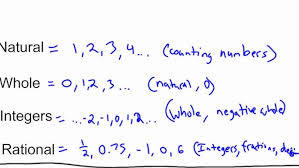 Natural = 1, 2, 3, 4... (counting numbers)
Whole = 0, 1, 2, 3... (natural, 0)
Integers = ...-2, -1, 0, 1, 2... (Whole, negative whole)
Rational = 1/2, 0.75, -1, 0, 6 (Integers, fractions,